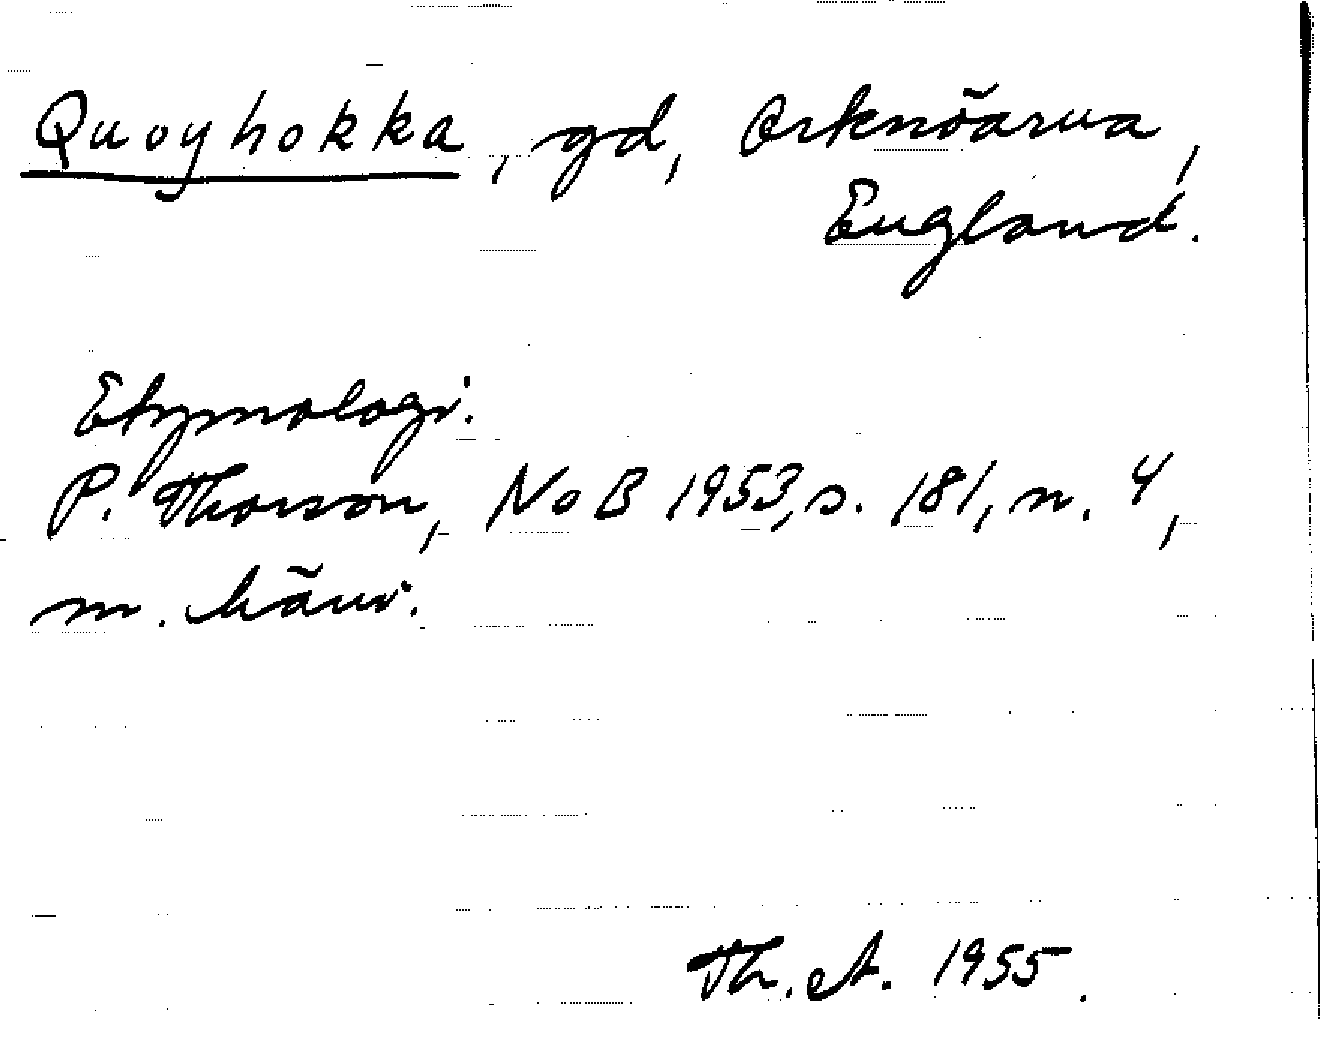 Quoyhokka, gd, Orknöarna,
England.
Etymologi:
P. Thorson, NoB 1953, s. 181, n. 4,
m. hänv.
Th. A. 1955.